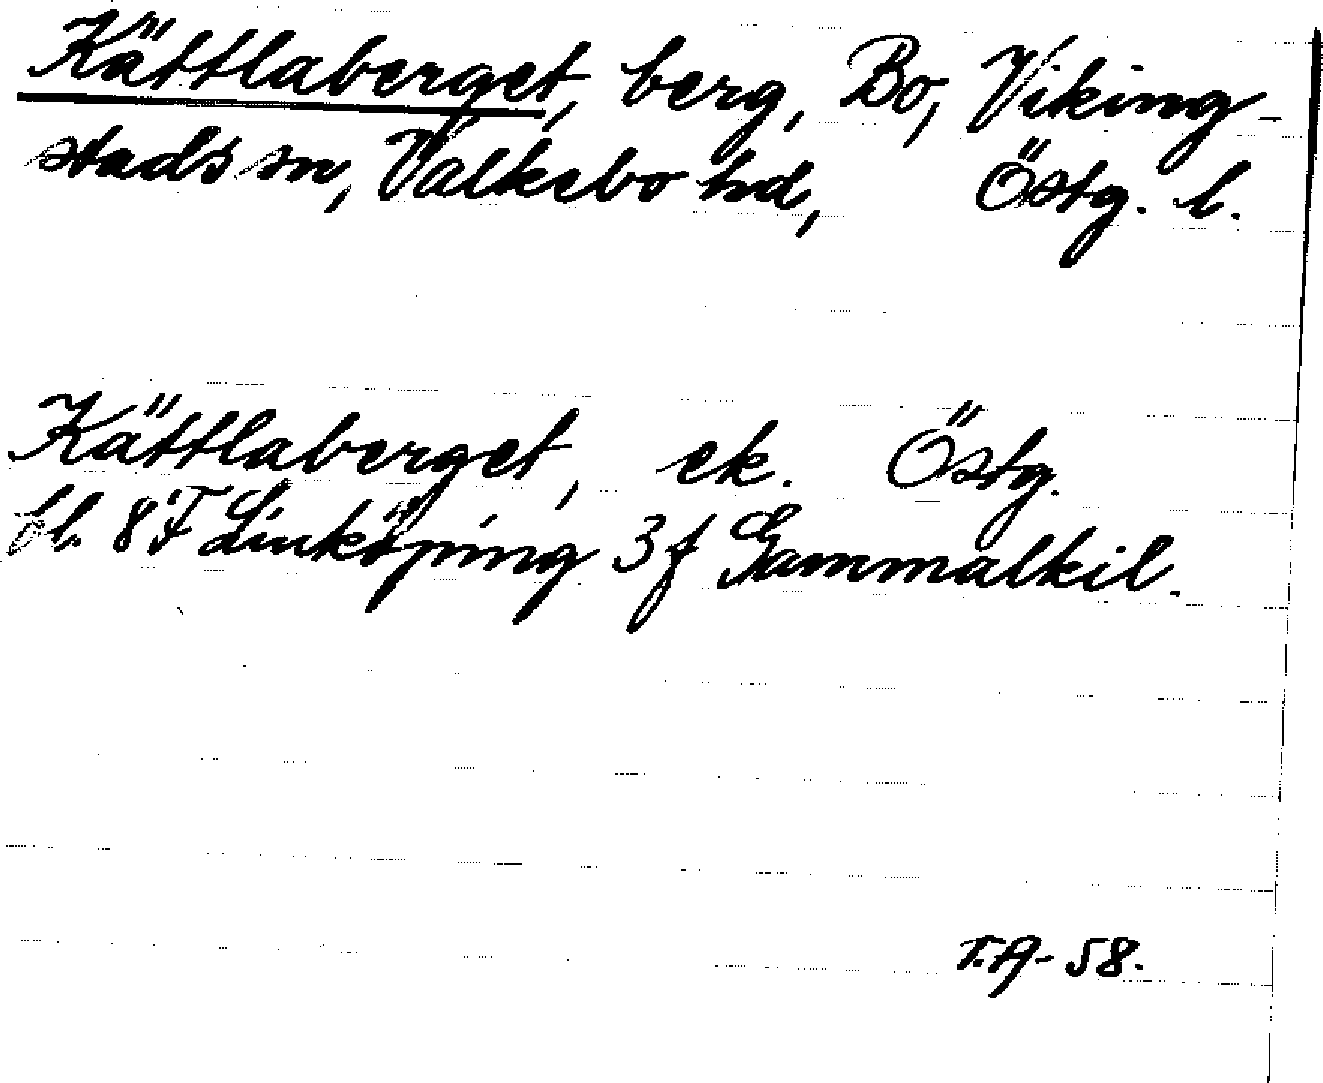 Kättlaberget, berg, Bo, Viking-
stads sn, Valkebo hd, Östg. l.
Kättlaberget, ek. Östg.
bl. 8F Linköping 3f Gammalkil.
T.A- 58.